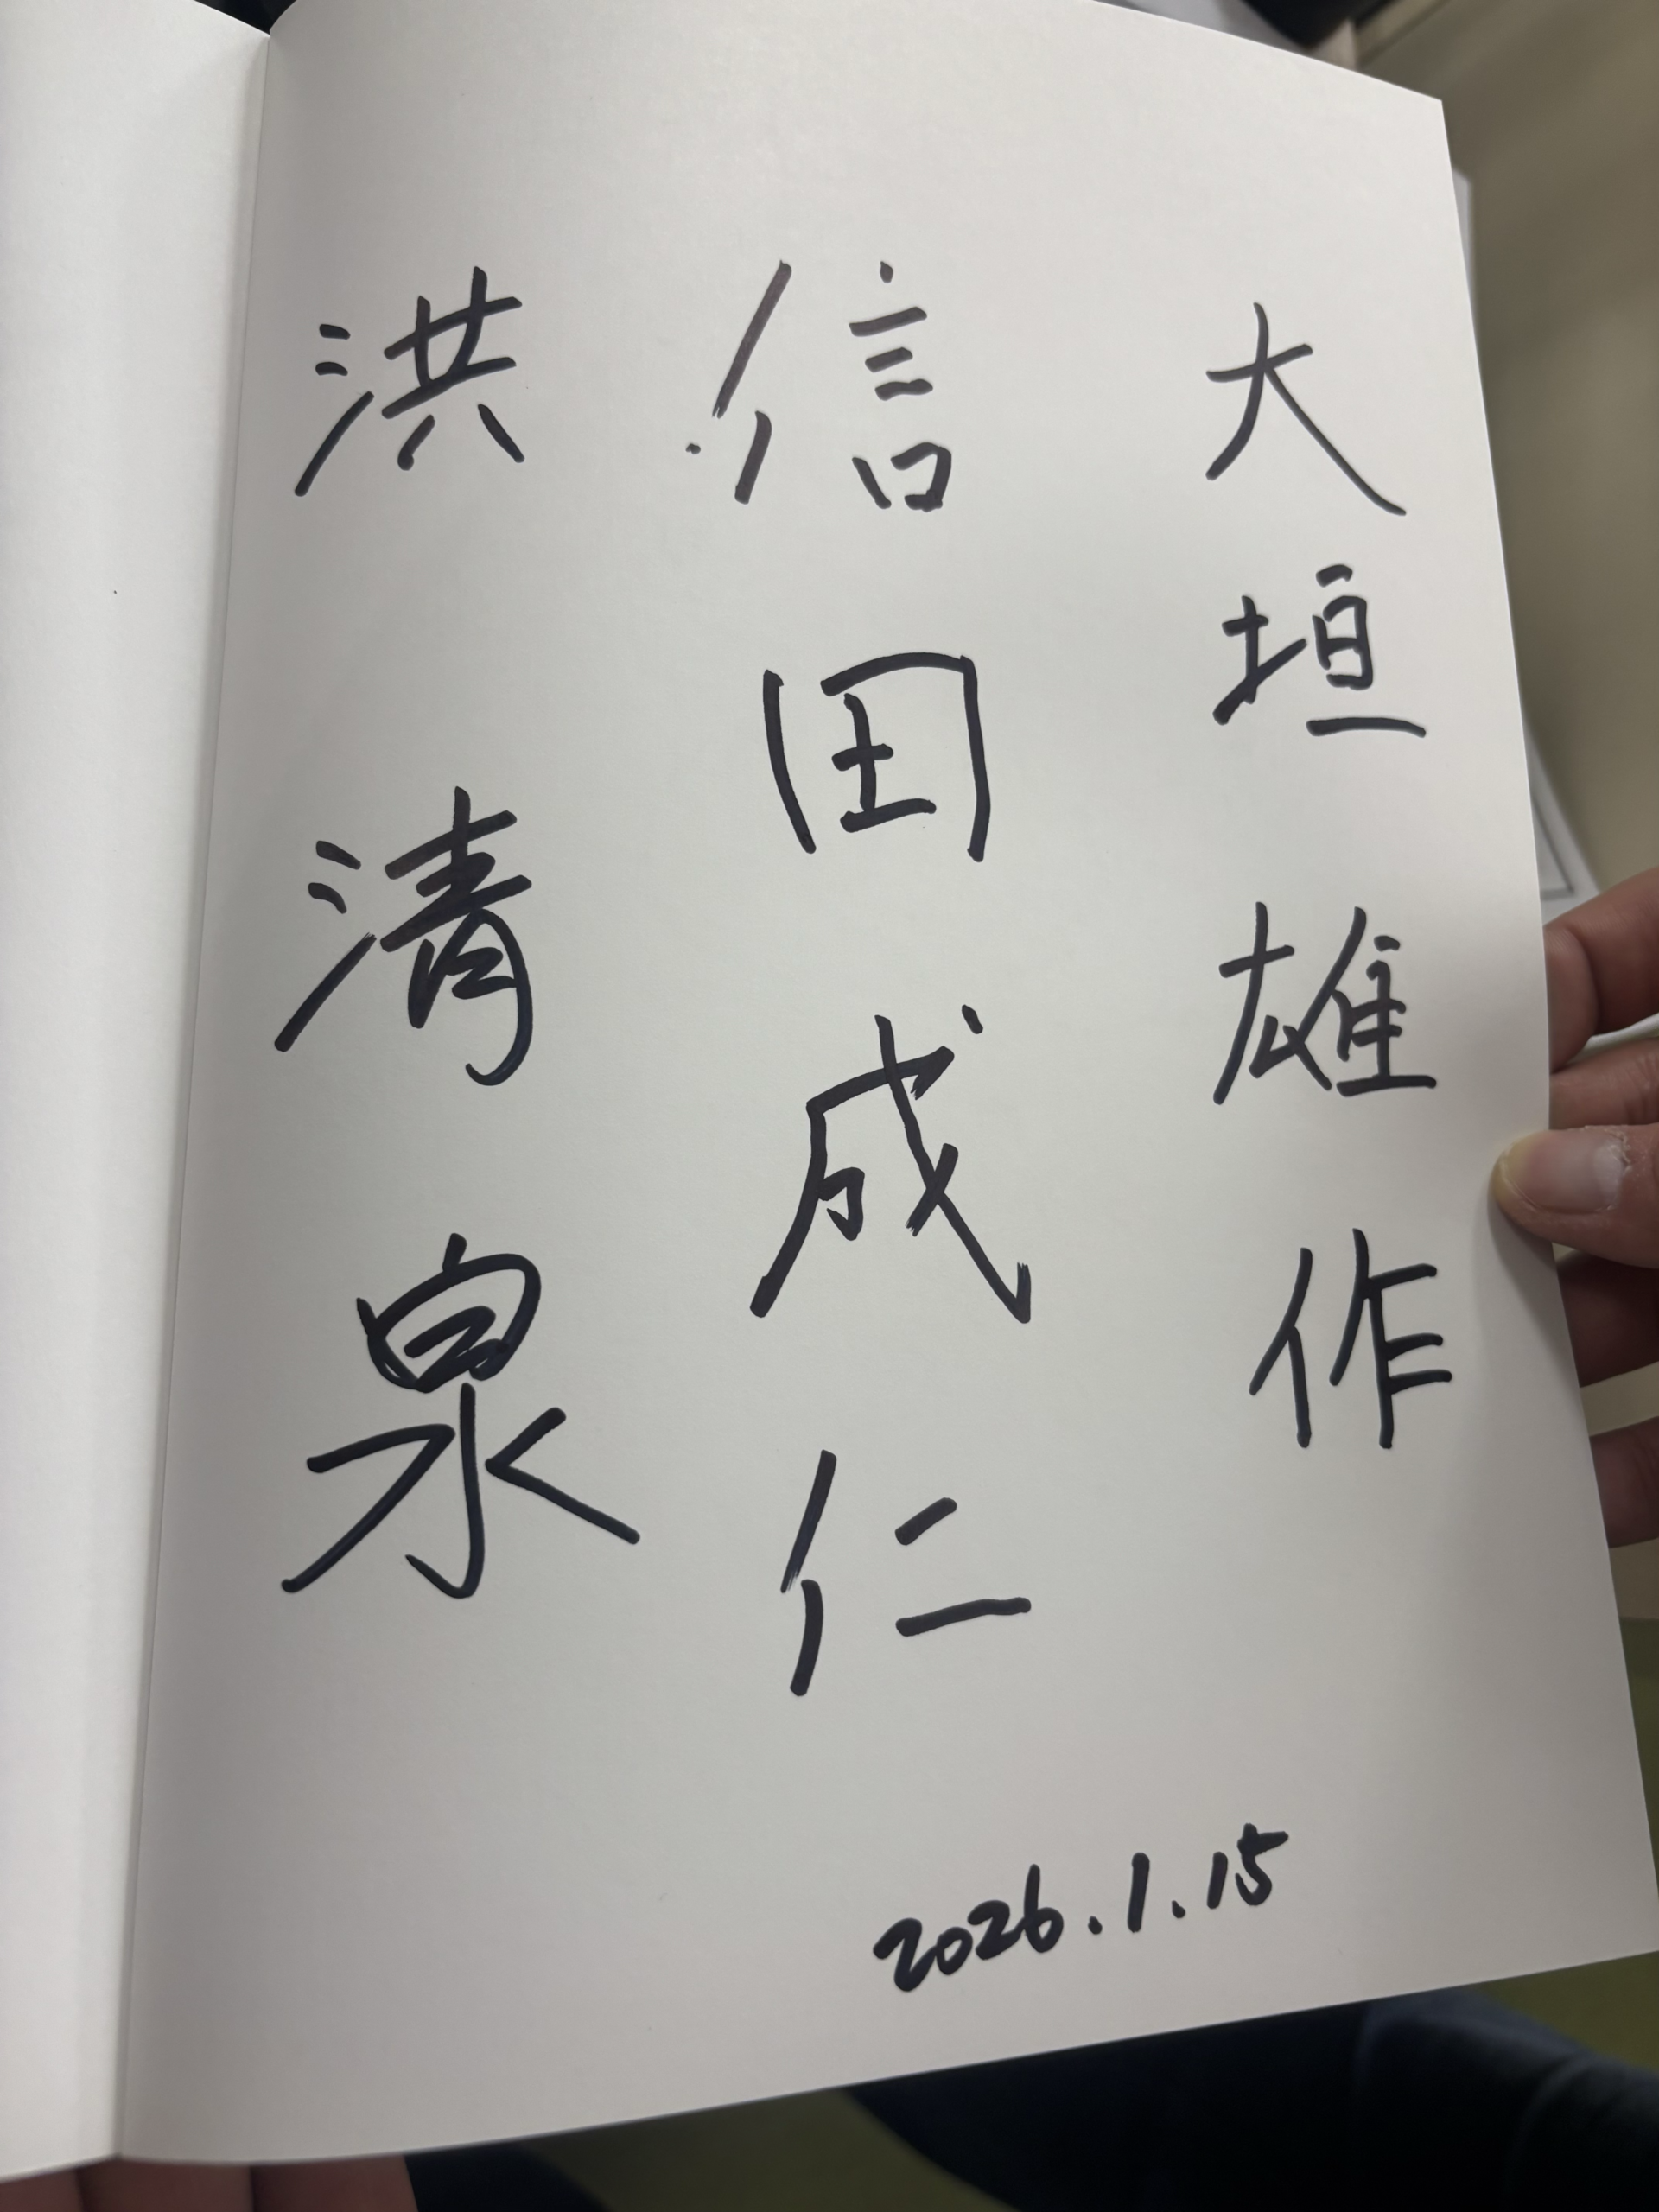 大垣雄作
信田成仁
洪清泉
2026.1.15